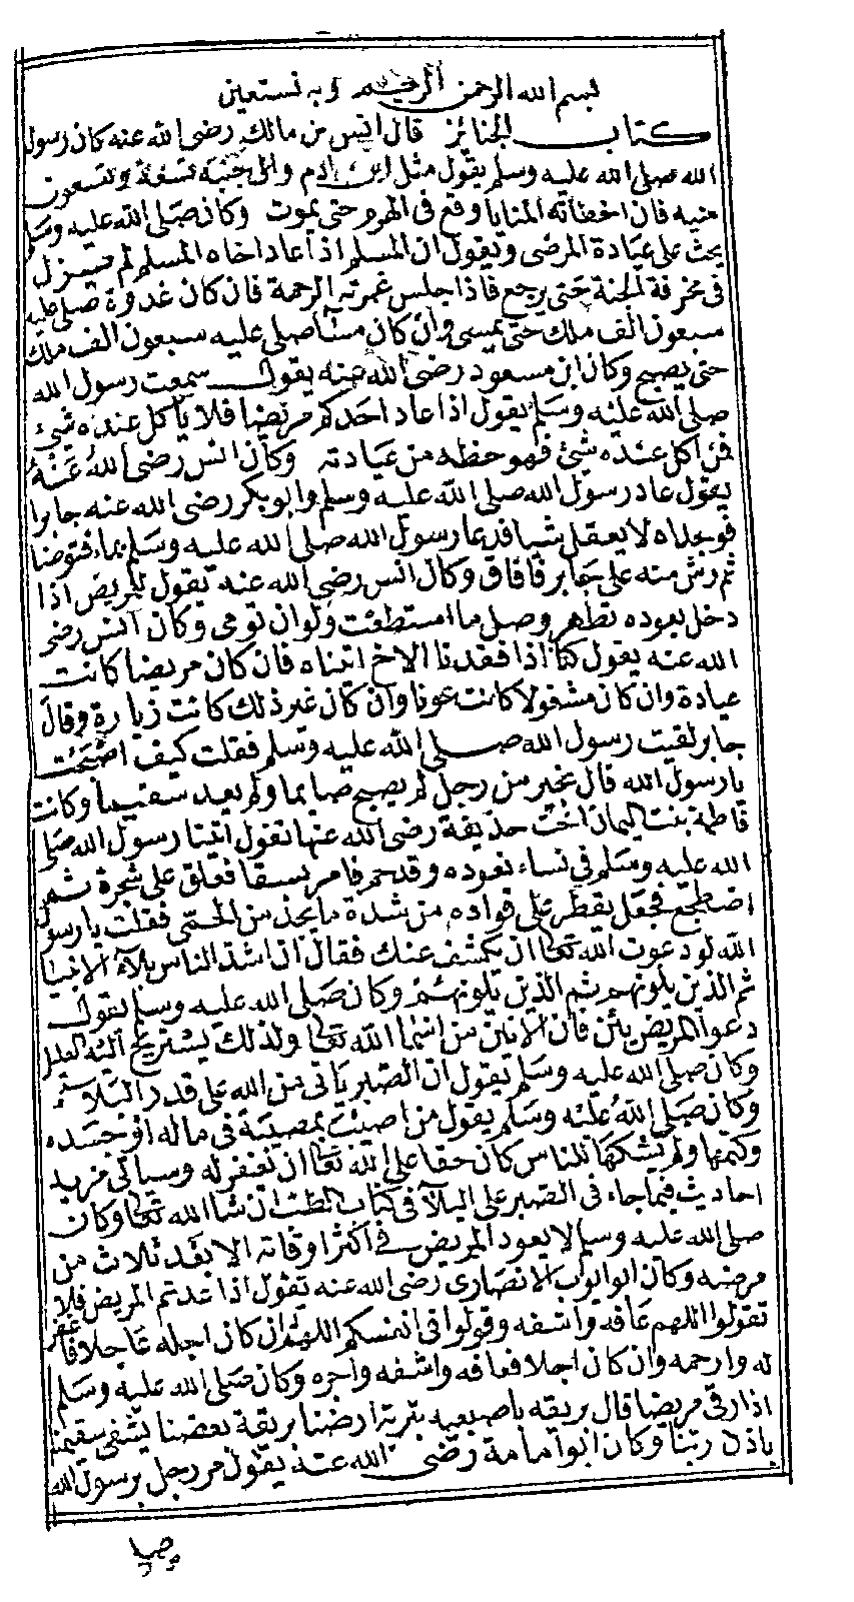 بسم الله الرحمن الرحيم وبه نستعين
كتاب الجنائز قال انس بن مالك رضى الله عنه كان رسول
الله صلى الله عليه وسلم يقول مثل ابن ادم والى جنبه تسعة وتسعون
منيه فان اخطاته المنايا وقع فى الهرم حتى يموت وكان صلى الله عليه وسلم
يحث على عيادة المرضى ويقول ان المسلم اذا عاد اخاه المسلم لم يزل
فى مخرفة الجنة حتى يرجع فاذا جلس غمرته الرحمة فان كان غدوة صلى عليه
سبعون الف ملك حتى يمسى وان كان مسأ صلى عليه سبعون الف ملك
حتى يصبح وكان ابن مسعود رضى الله عنه يقول سمعت رسول الله
صلى الله عليه وسلم يقول اذا عاد احدكم مريضا فلا يأكل عنده شئ
فمن اكل عنده شئ فهو حظه من عيادته وكان انس رضى الله عنه
يقول عاد رسول الله صلى الله عليه وسلم وابو بكر رضى الله عنه جابرا
فوجداه لا يعقل شيا فدعا رسول الله صلى الله عليه وسلم بماء فتوضا
ثم رش منه على جابر فافاق وكان انس رضى الله عنه يقول للمريض اذا
دخل يعوده تطهر وصل ما استطعت ولو ان تومى وكان انس رضى
الله عنه يقول كنا اذا فقدنا الاخ اتيناه فان كان مريضا كانت
عيادة وان كان مشغولا كانت عونا وان كان غير ذلك كانت زيارة وقال
جابر لقيت رسول الله صلى الله عليه وسلم فقلت كيف اصبحت
يا رسول الله قال بخير من رجل لم يصبح صايما ولم يعد سقيما وكانت
فاطمة بنت اليمان اخت حذيفة رضى الله عنها تقول اتينا رسول الله صلى
الله عليه وسلم في نساء نعوده وقد حم فامر بسقا فعلق على شجرة ثم
اضطجع فجعل يقطر على فواده من شدة ما يجد من الحمى فقلت يا رسول
الله لو دعوت الله تعالى ان يكشف عنك فقال ان اشد الناس بلاء الانبيا
ثم الذين يلونهم ثم الذين يلونهم وكان صلى الله عليه وسلم يقول
دعوا المريض يئن فان الانين من اسما الله تعالى ولذلك يستريح اليه العليل
وكان صلى الله عليه وسلم يقول ان الصبر ياتى من الله على قدر البلاء
وكان صلى الله عليه وسلم يقول من اصيب بمصيبة فى ماله او جسده
وكتمها ولم يشكها للناس كان حقا على الله تعالى ان يغفر له وسياتى مزيد
احاديث فيما جاء فى الصبر على البلآ فى كتاب الطب ان شا الله تعالى وكان
صلى الله عليه وسلم لا يعود المريض في اكثر اوقاته الا بعد ثلاث من
مرضه وكان ابو ايوب الانصارى رضى الله عنه يقول اذا عدتم المريض فلا
تقولوا اللهم عافه واشفه وقولوا فى انفسكم اللهم ان كان اجله عاجلا فاغفر
له وارحمه وان كان اجلا فعافه واشفه واجره وكان صلى الله عليه وسلم
اذا رقى مريضا قال بريقه باصبعيه بتربة ارضنا بريقة بعضنا يشفى سقيمنا
باذن ربنا وكان ابو امامة رضى الله عنه يقول مر رجل برسول الله